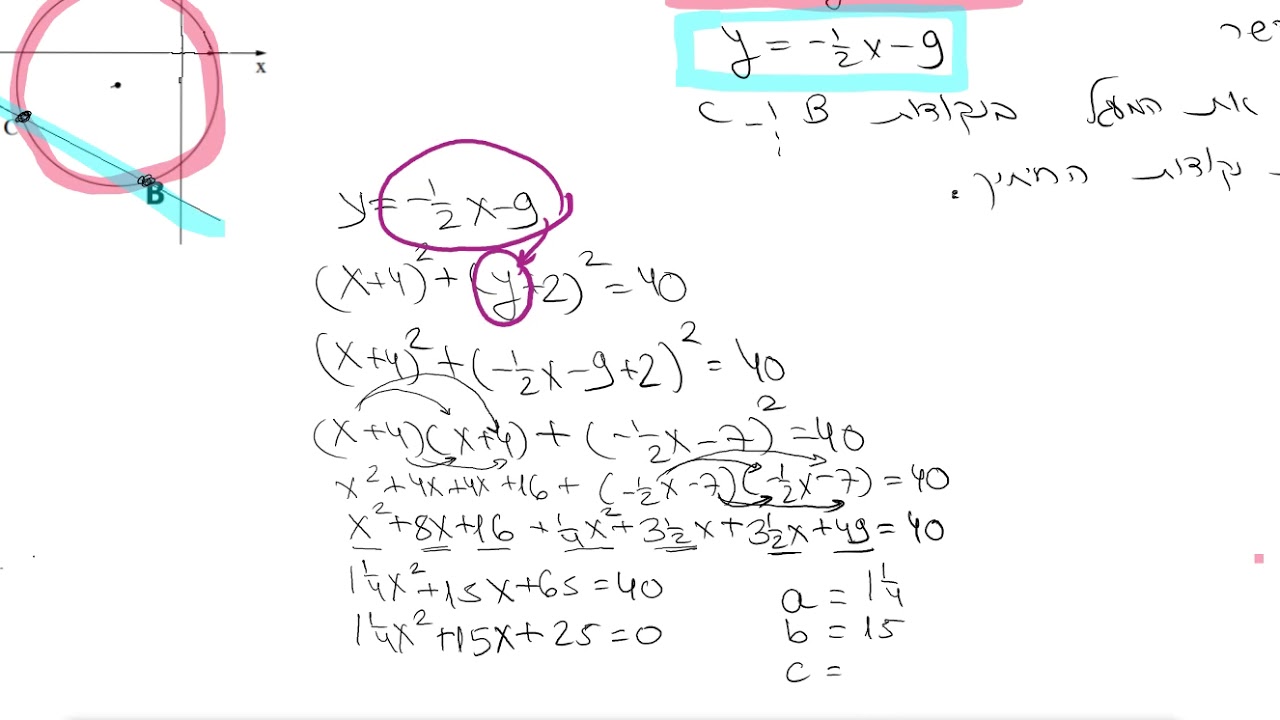 y = -½x - 9
ישר
את המעגל בנקודות B ו- C
נקודות החיתוך.
x
C
B
y = -½x - 9
(x+4)² + (y+2)² = 40
(x+4)² + (-½x - 9 + 2)² = 40
(x+4)(x+4) + (-½x - 7)² = 40
x² + 4x + 4x + 16 + (-½x - 7)(-½x - 7) = 40
x² + 8x + 16 + ¼x² + 3½x + 3½x + 49 = 40
1¼x² + 15x + 65 = 40
1¼x² + 15x + 25 = 0
a = 1¼
b = 15
c =